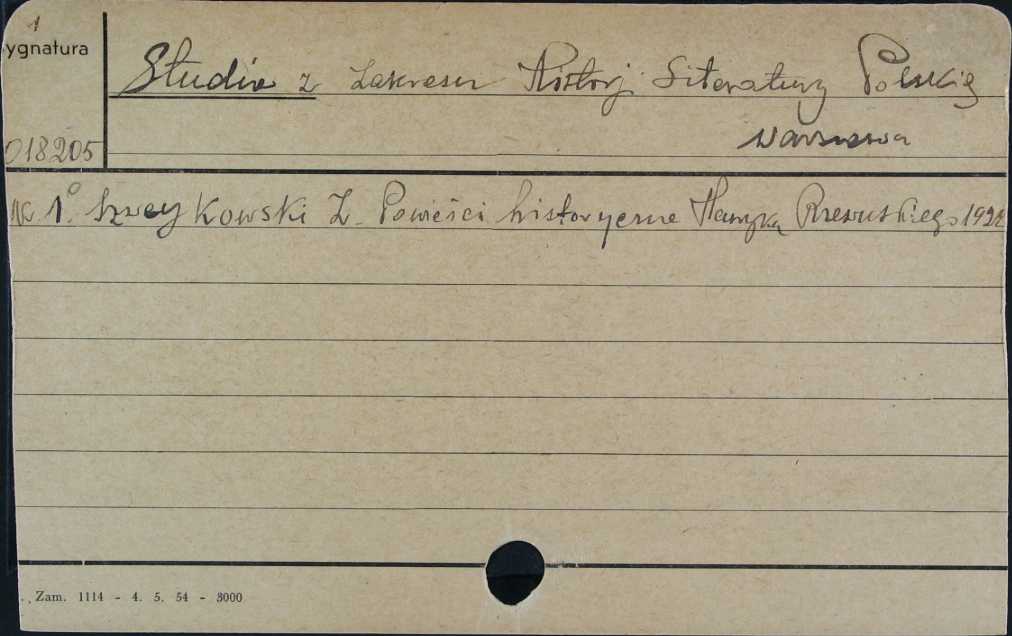 1
ygnatura
Studia z zakresu Historj Literatury Polskiej
018205
Warszawa
Nr 1. Szweykowski Z. Powieści historyczne Henryka Rzewuskiego
Zam. 1114 - 4. 5. 54 - 3000